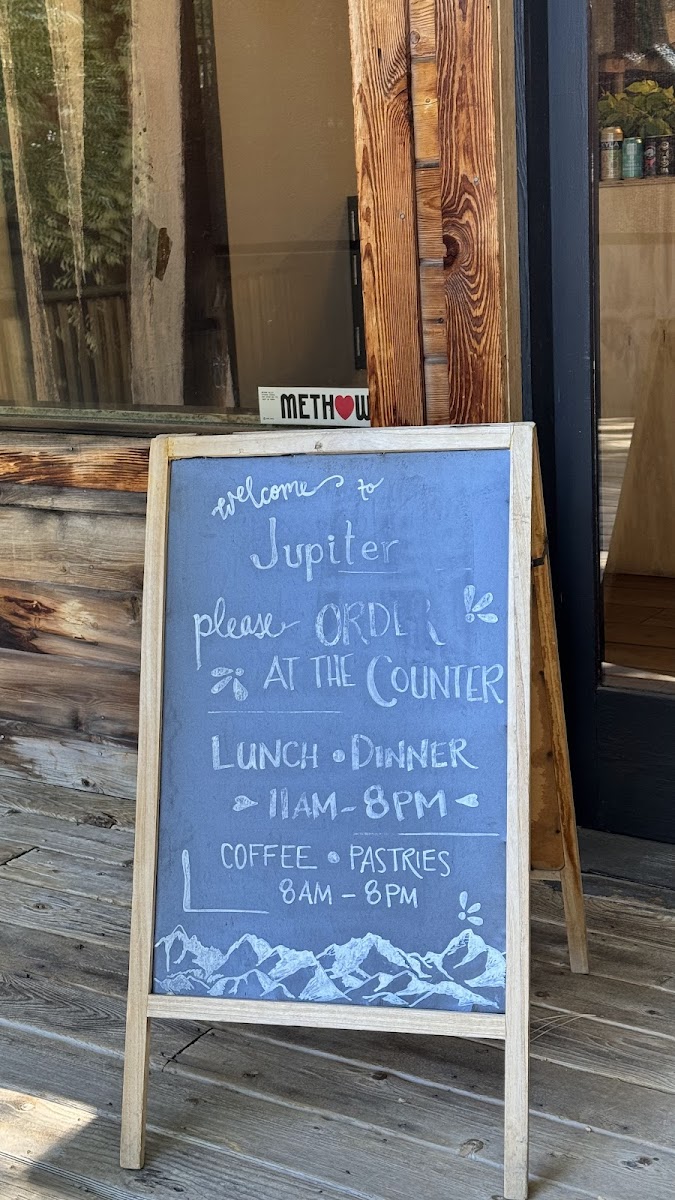 METH❤W
welcome to
Jupiter
please ORDER
AT THE COUNTER
LUNCH • DINNER
11AM - 8PM
COFFEE • PASTRIES
8AM - 8PM